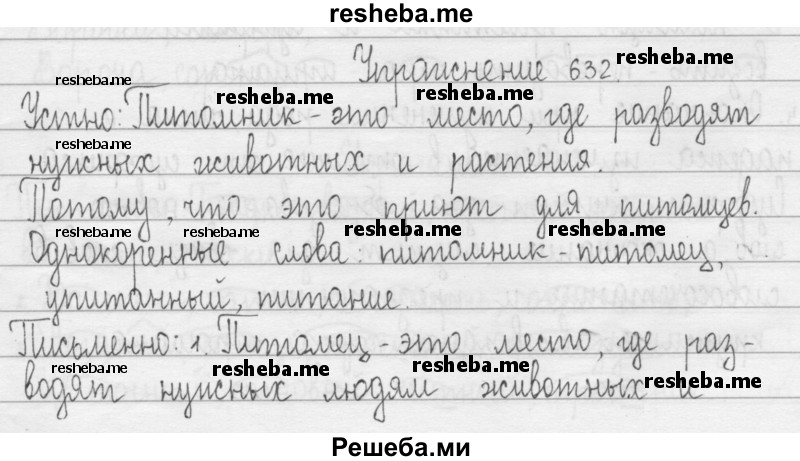 resheba.me
Упражнение 632.
resheba.me
resheba.me
resheba.me
resheba.me
Устно: Питомник - это место, где разводят
resheba.me
нужных животных и растения.
Потому, что это приют для питомцев.
resheba.me
resheba.me
resheba.me
resheba.me
Однокоренные слова: питомник - питомец,
упитанный, питание.
Письменно: 1. Питомец - это место, где раз-
resheba.me
resheba.me
resheba.me
resheba.me
водят нужных людям животных и
Решеба.ми